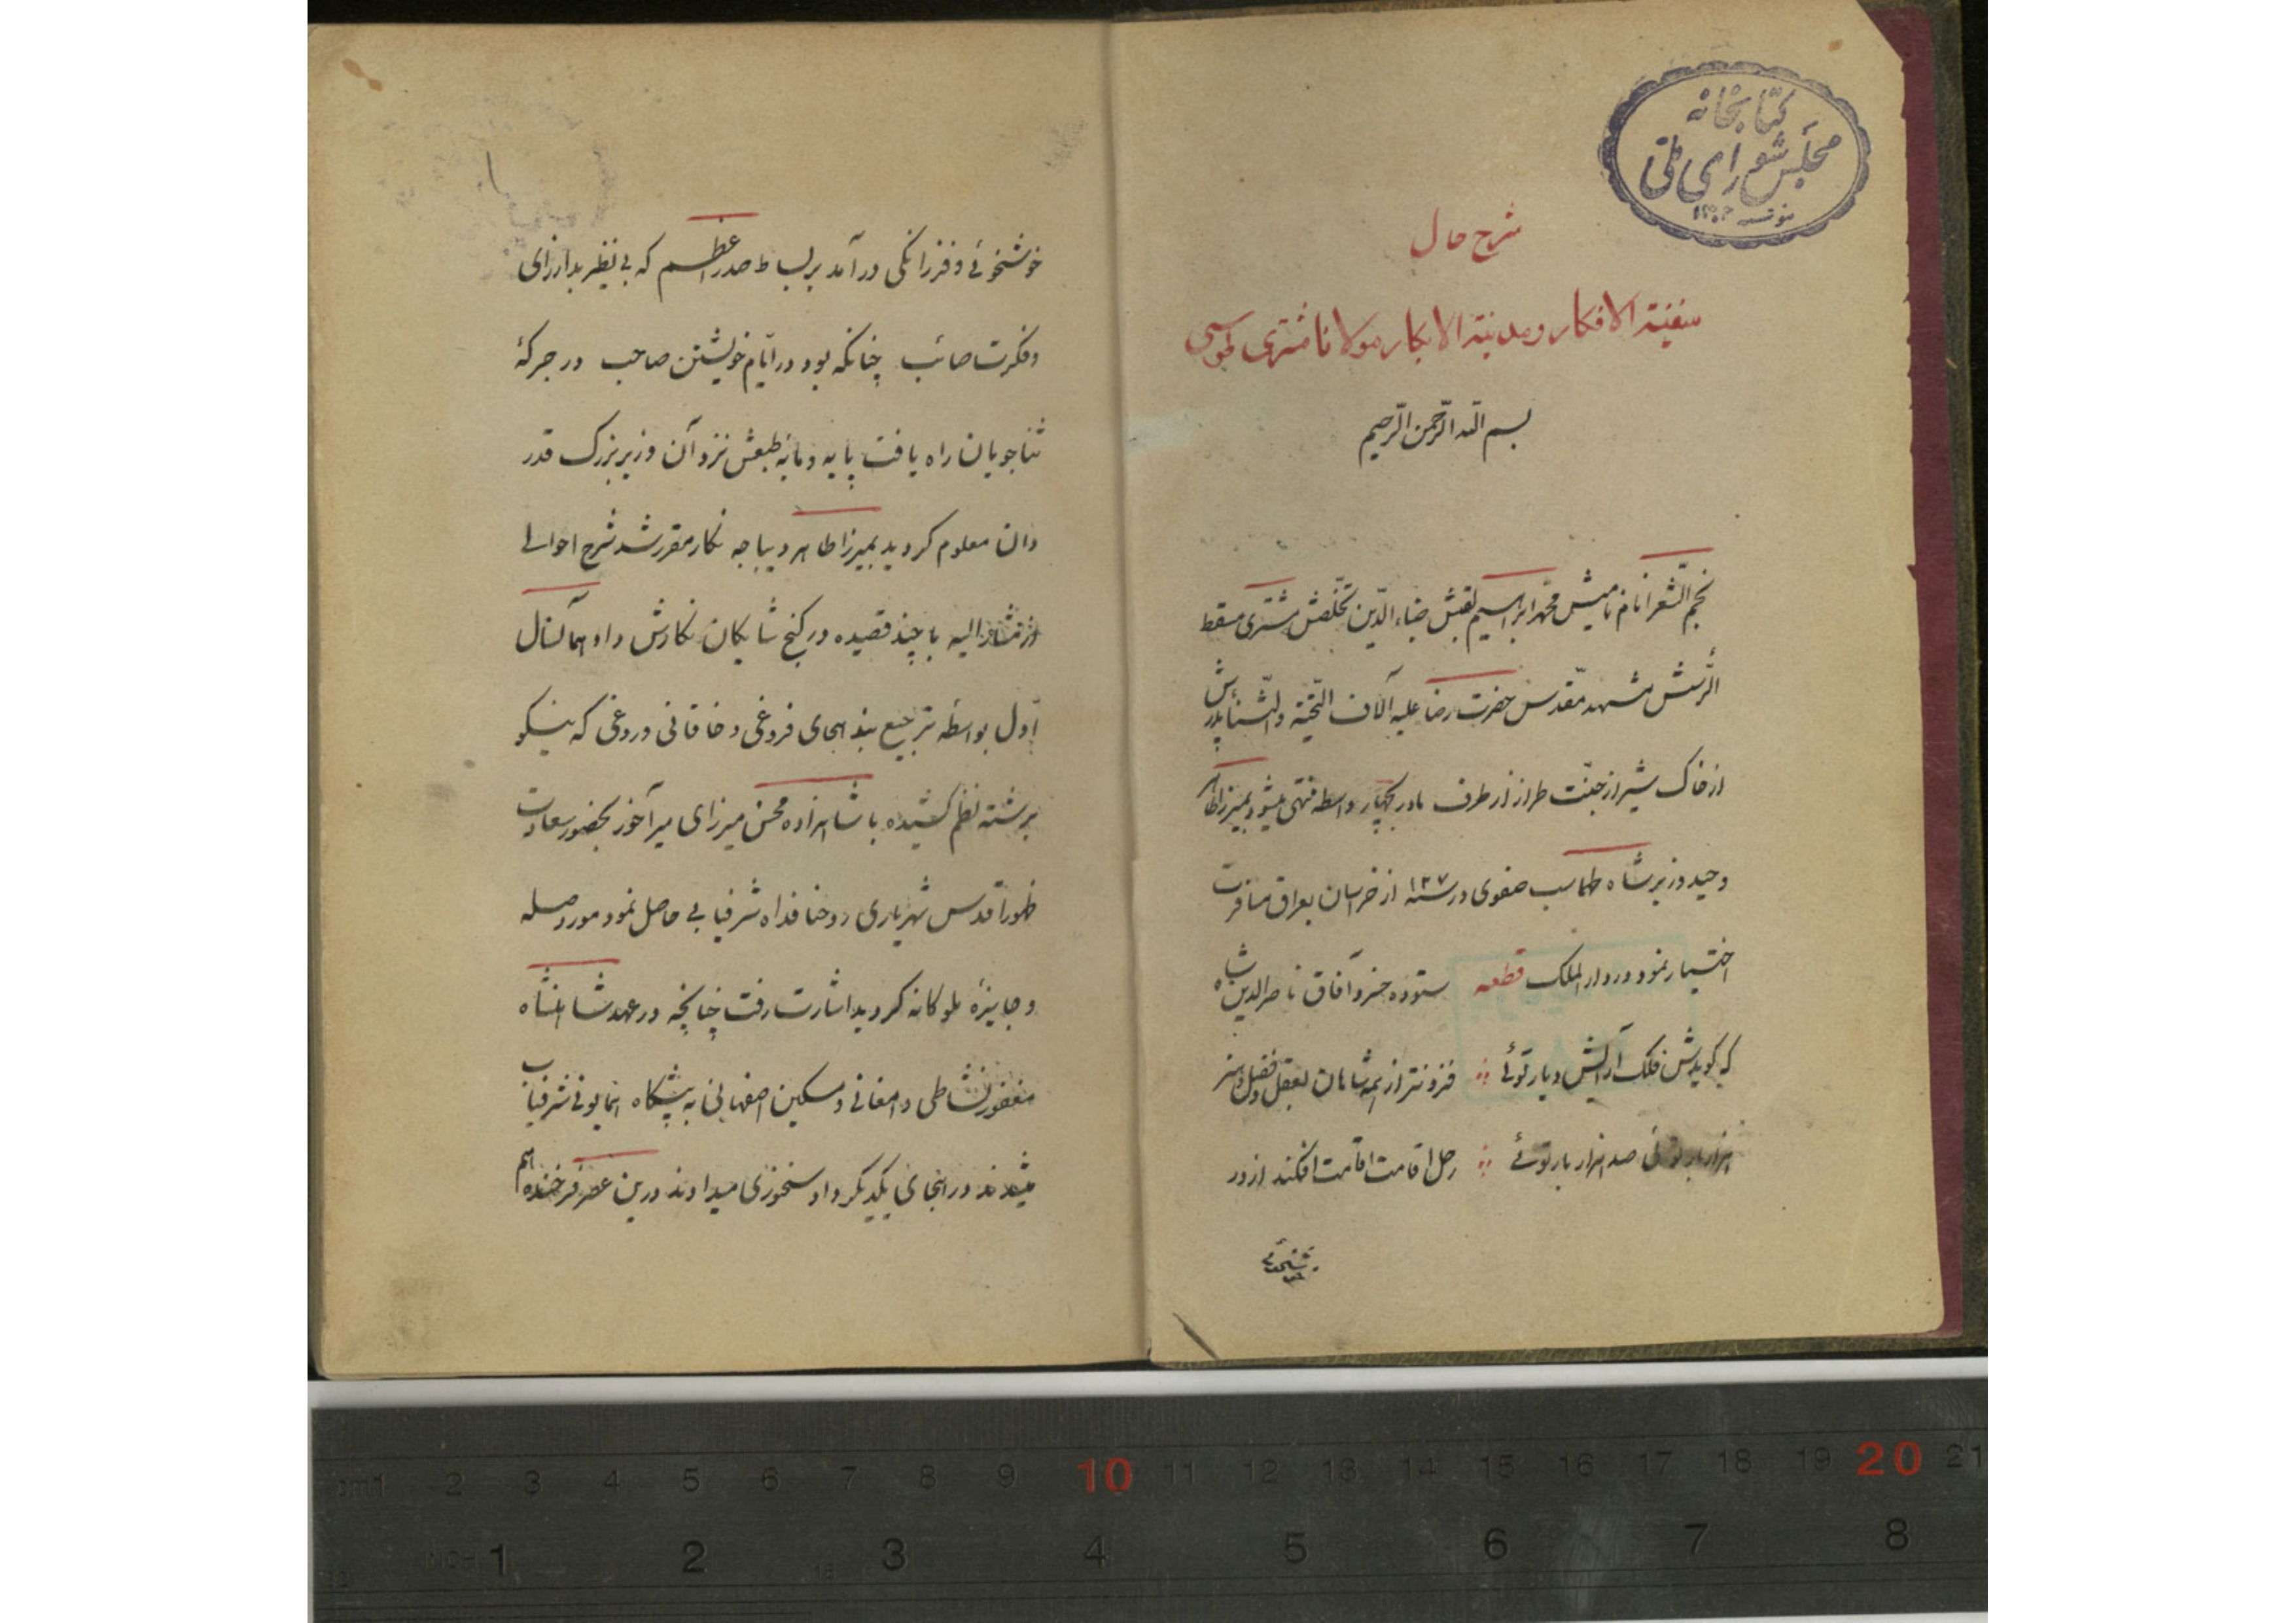 کتابخانه
مجلس شورای ملی
شرح حال
سفینة الافکار و مدینة الابکار مولانا مشتری طوسی
بسم الله الرحمن الرحیم
نجم الشعرا نام نامیش محمد ابراهیم لقبش ضیاء الدین تخلصش مشتری مسقط
الرأسش مشهد مقدس حضرت رضا علیه آلاف التحیة والثناء پدرش
از خاک شیراز جنت طراز از طرف مادر بچهار واسطه منتهی میشود بمیرزا طاهر
وحید وزیر شاه طهماسب صفوی در سنه از خراسان بعراق مسافرت
اختیار نمود در دار الملک قطعه ستوده خسرو آفاق ناصر الدین شاه
که گویدش فلک آرایش دیار توئی فزونتر از همه شاهان بعقل و فضل و هنر
هزار بار توئی صد هزار بار توئی رحل اقامت افکند از در
خوشخوئی و فرزانگی در آمد بر بساط صدر اعظم که بی نظیر بد از رای
و فکرت صائب چنانکه بود در ایام خویشتن صاحب در جرکهٔ
ثناجویان راه یافت پایه و مایه طبعش نزد آن وزیر بزرگ قدر
دان معلوم گردید بمیرزا طاهر دیباجه نگار مقرر شد شرح احوالی
از مشار الیه با چند قصیده در گنج شایگان نگارش داد همانسال
اول بواسطه ترجیع بند هجای فروغی و خاقانی دروغی که نیکو
برشته نظم کشیده با شاهزاده محسن میرزای میرآخور بحضور سعادت
ظهور اقدس شهریاری روحنا فداه شرفیابی حاصل نمود مورد صله
و جایزهٔ ملوکانه گردید اشارت رفت چنانچه در عهد شاهنشاه
مغفور نشاطی دامغانی و مسکین اصفهانی به پیشگاه همایونی شرفیاب
میشدند در هجای یکدیگر داد سخنوری میدادند درین عصر فرخنده هم